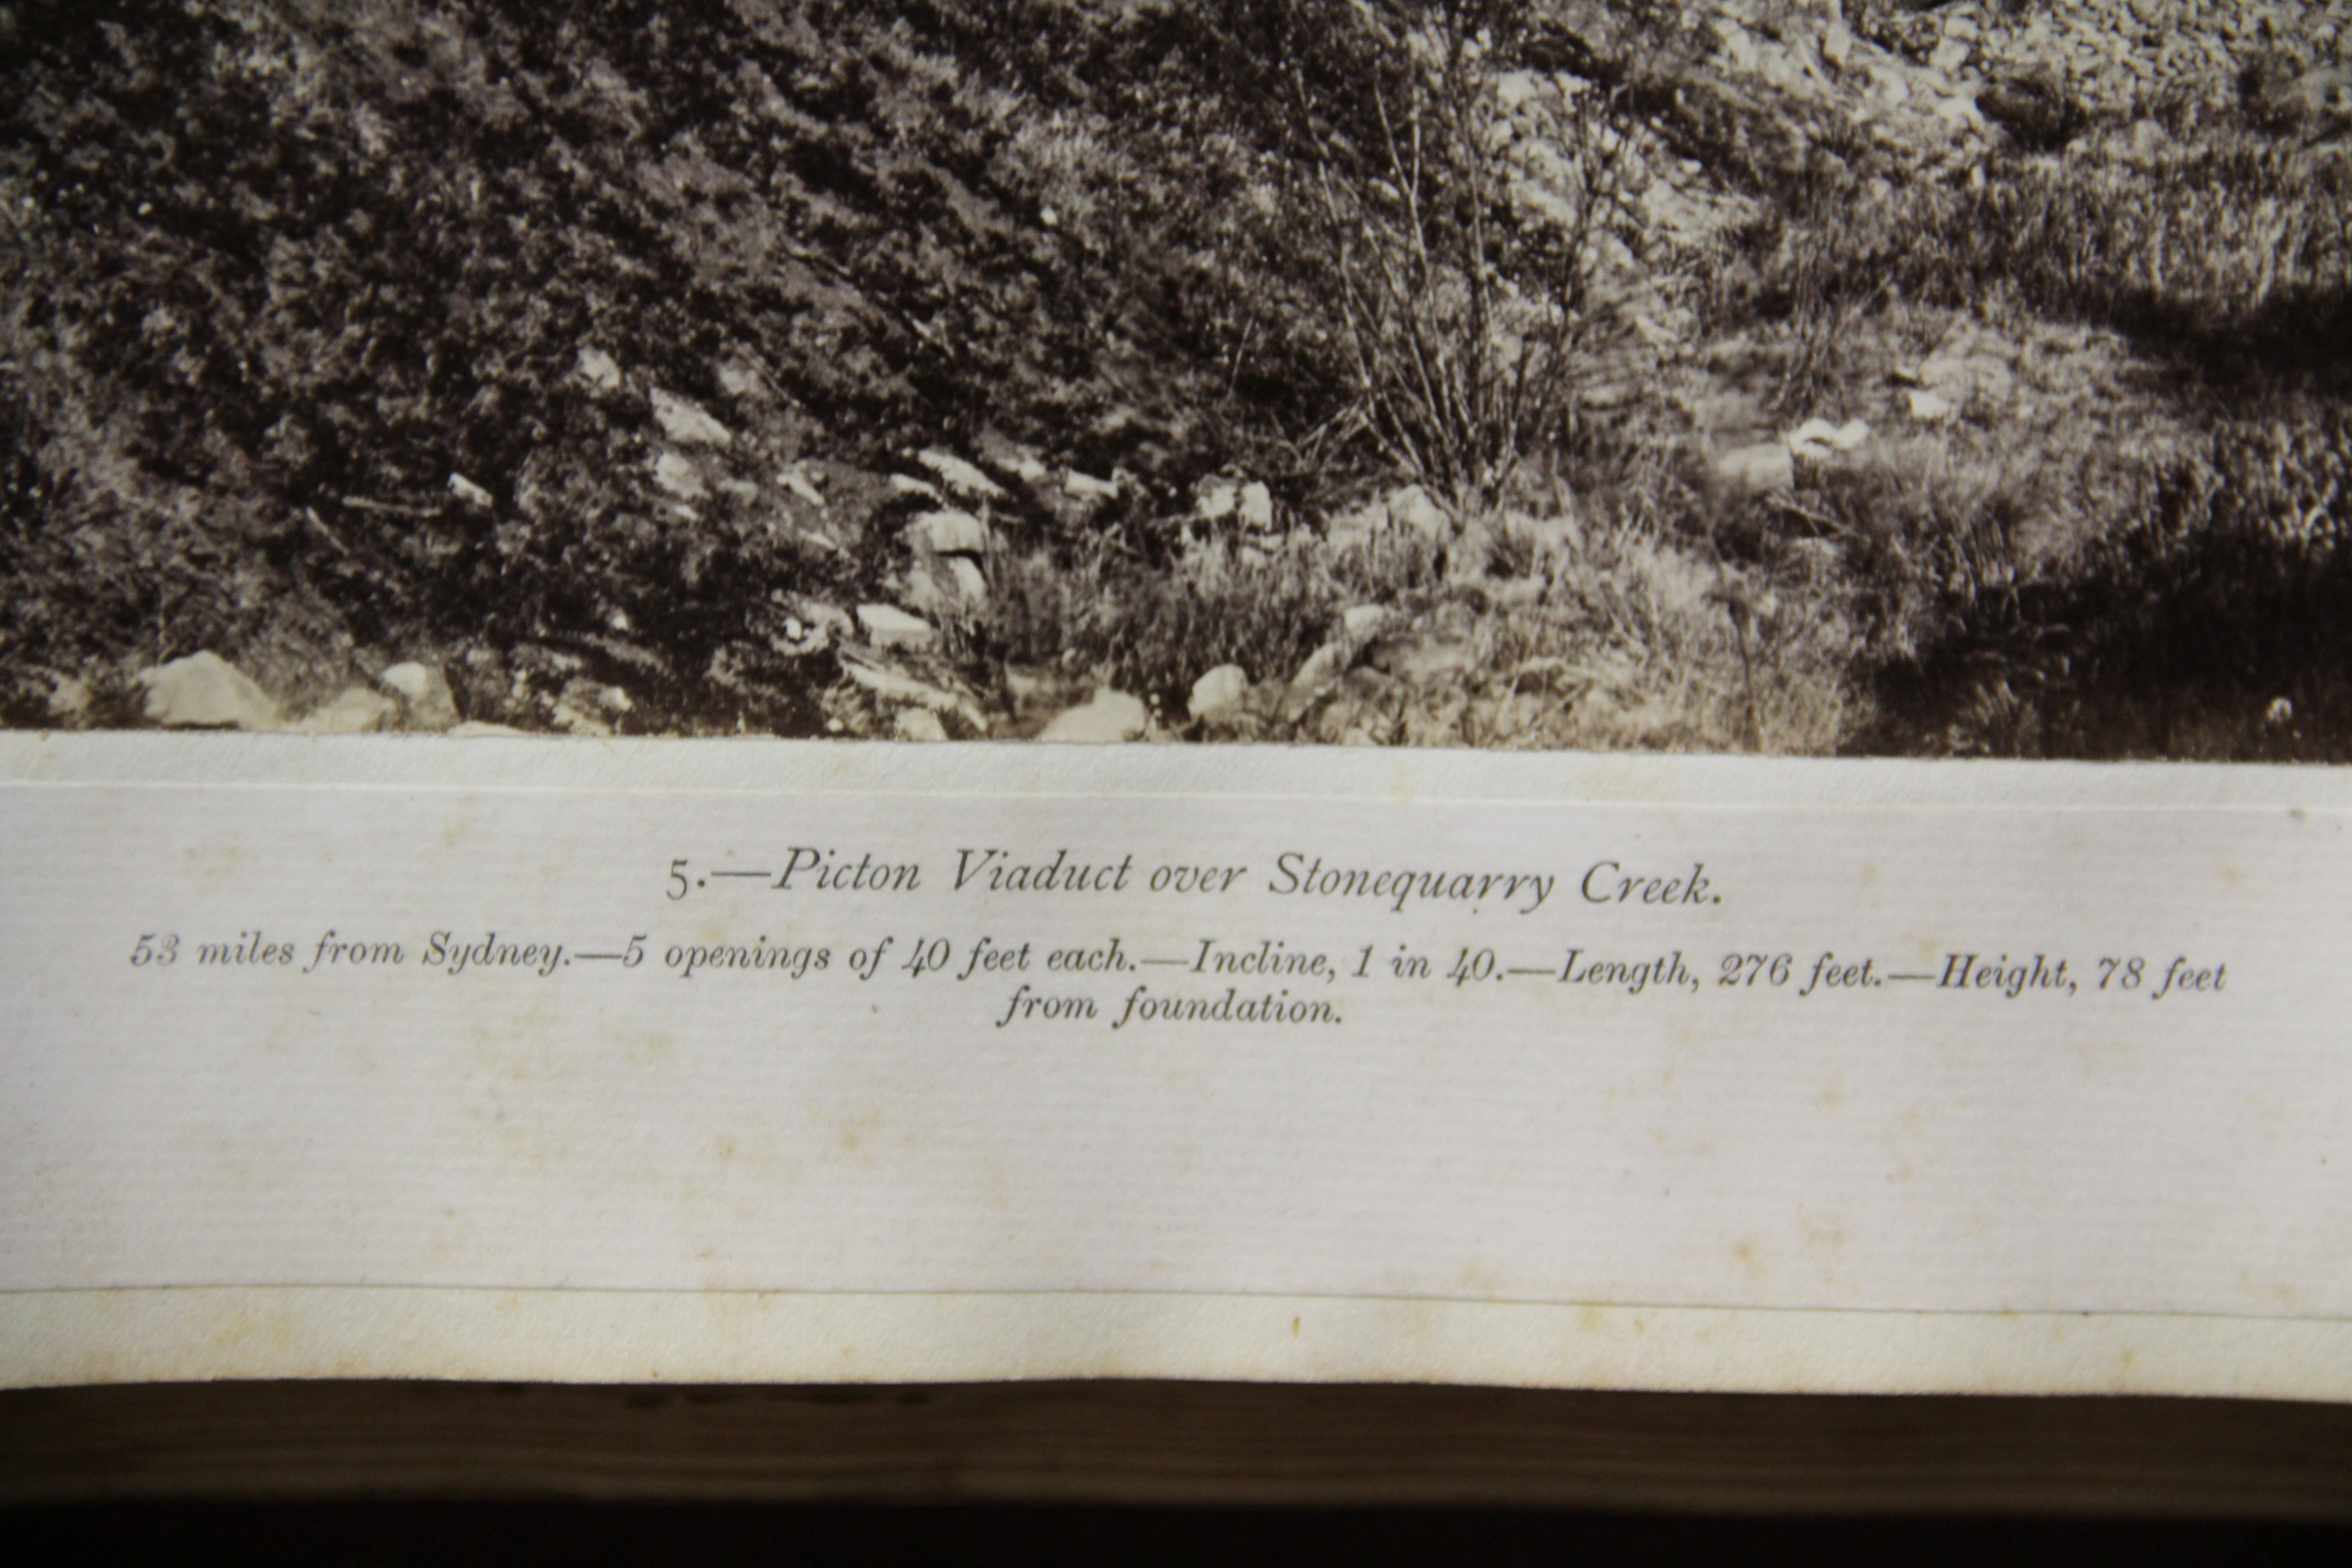 5.—Picton Viaduct over Stonequarry Creek.
53 miles from Sydney.—5 openings of 40 feet each.—Incline, 1 in 40.—Length, 276 feet.—Height, 78 feet
from foundation.